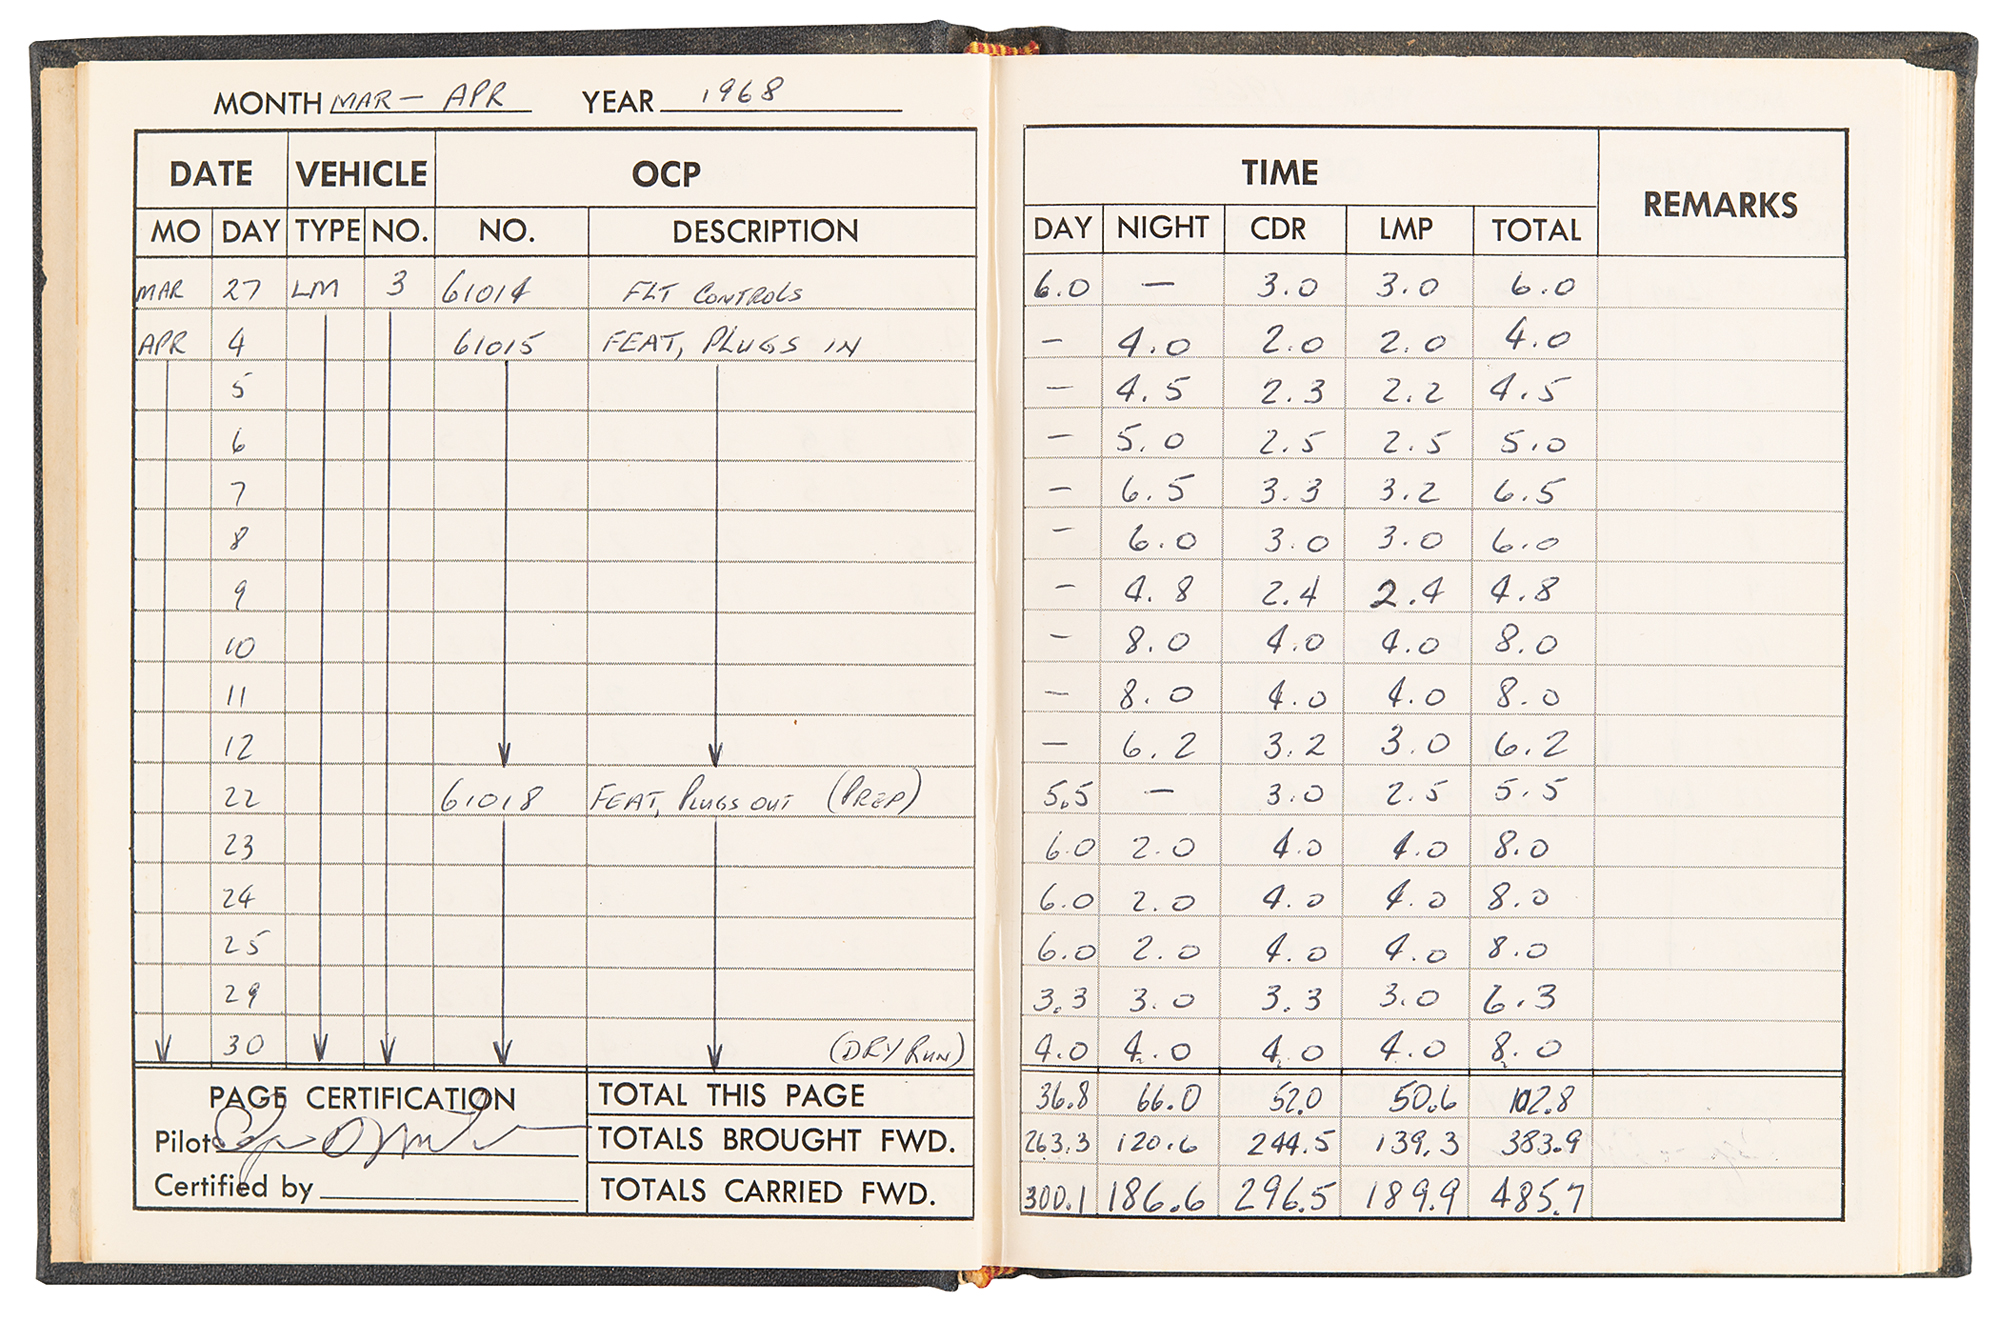 MONTH MAR – APR YEAR 1968
DATE VEHICLE OCP TIME REMARKS
MO DAY TYPE NO. NO. DESCRIPTION DAY NIGHT CDR LMP TOTAL
MAR 27 LM 3 61014 FLT CONTROLS 6.0 — 3.0 3.0 6.0
APR 4 61015 FEAT, PLUGS IN — 4.0 2.0 2.0 4.0
5 — 4.5 2.3 2.2 4.5
6 — 5.0 2.5 2.5 5.0
7 — 6.5 3.3 3.2 6.5
8 — 6.0 3.0 3.0 6.0
9 — 4.8 2.4 2.4 4.8
10 — 8.0 4.0 4.0 8.0
11 — 8.0 4.0 4.0 8.0
12 — 6.2 3.2 3.0 6.2
22 61018 FEAT, PLUGS OUT (PREP) 5.5 — 3.0 2.5 5.5
23 6.0 2.0 4.0 4.0 8.0
24 6.0 2.0 4.0 4.0 8.0
25 6.0 2.0 4.0 4.0 8.0
29 3.3 3.0 3.3 3.0 6.3
30 (DRY RUN) 4.0 4.0 4.0 4.0 8.0
PAGE CERTIFICATION TOTAL THIS PAGE 36.8 66.0 52.0 50.6 102.8
Pilot TOTALS BROUGHT FWD. 263.3 120.6 244.5 139.3 383.9
Certified by TOTALS CARRIED FWD. 300.1 186.6 296.5 189.9 485.7